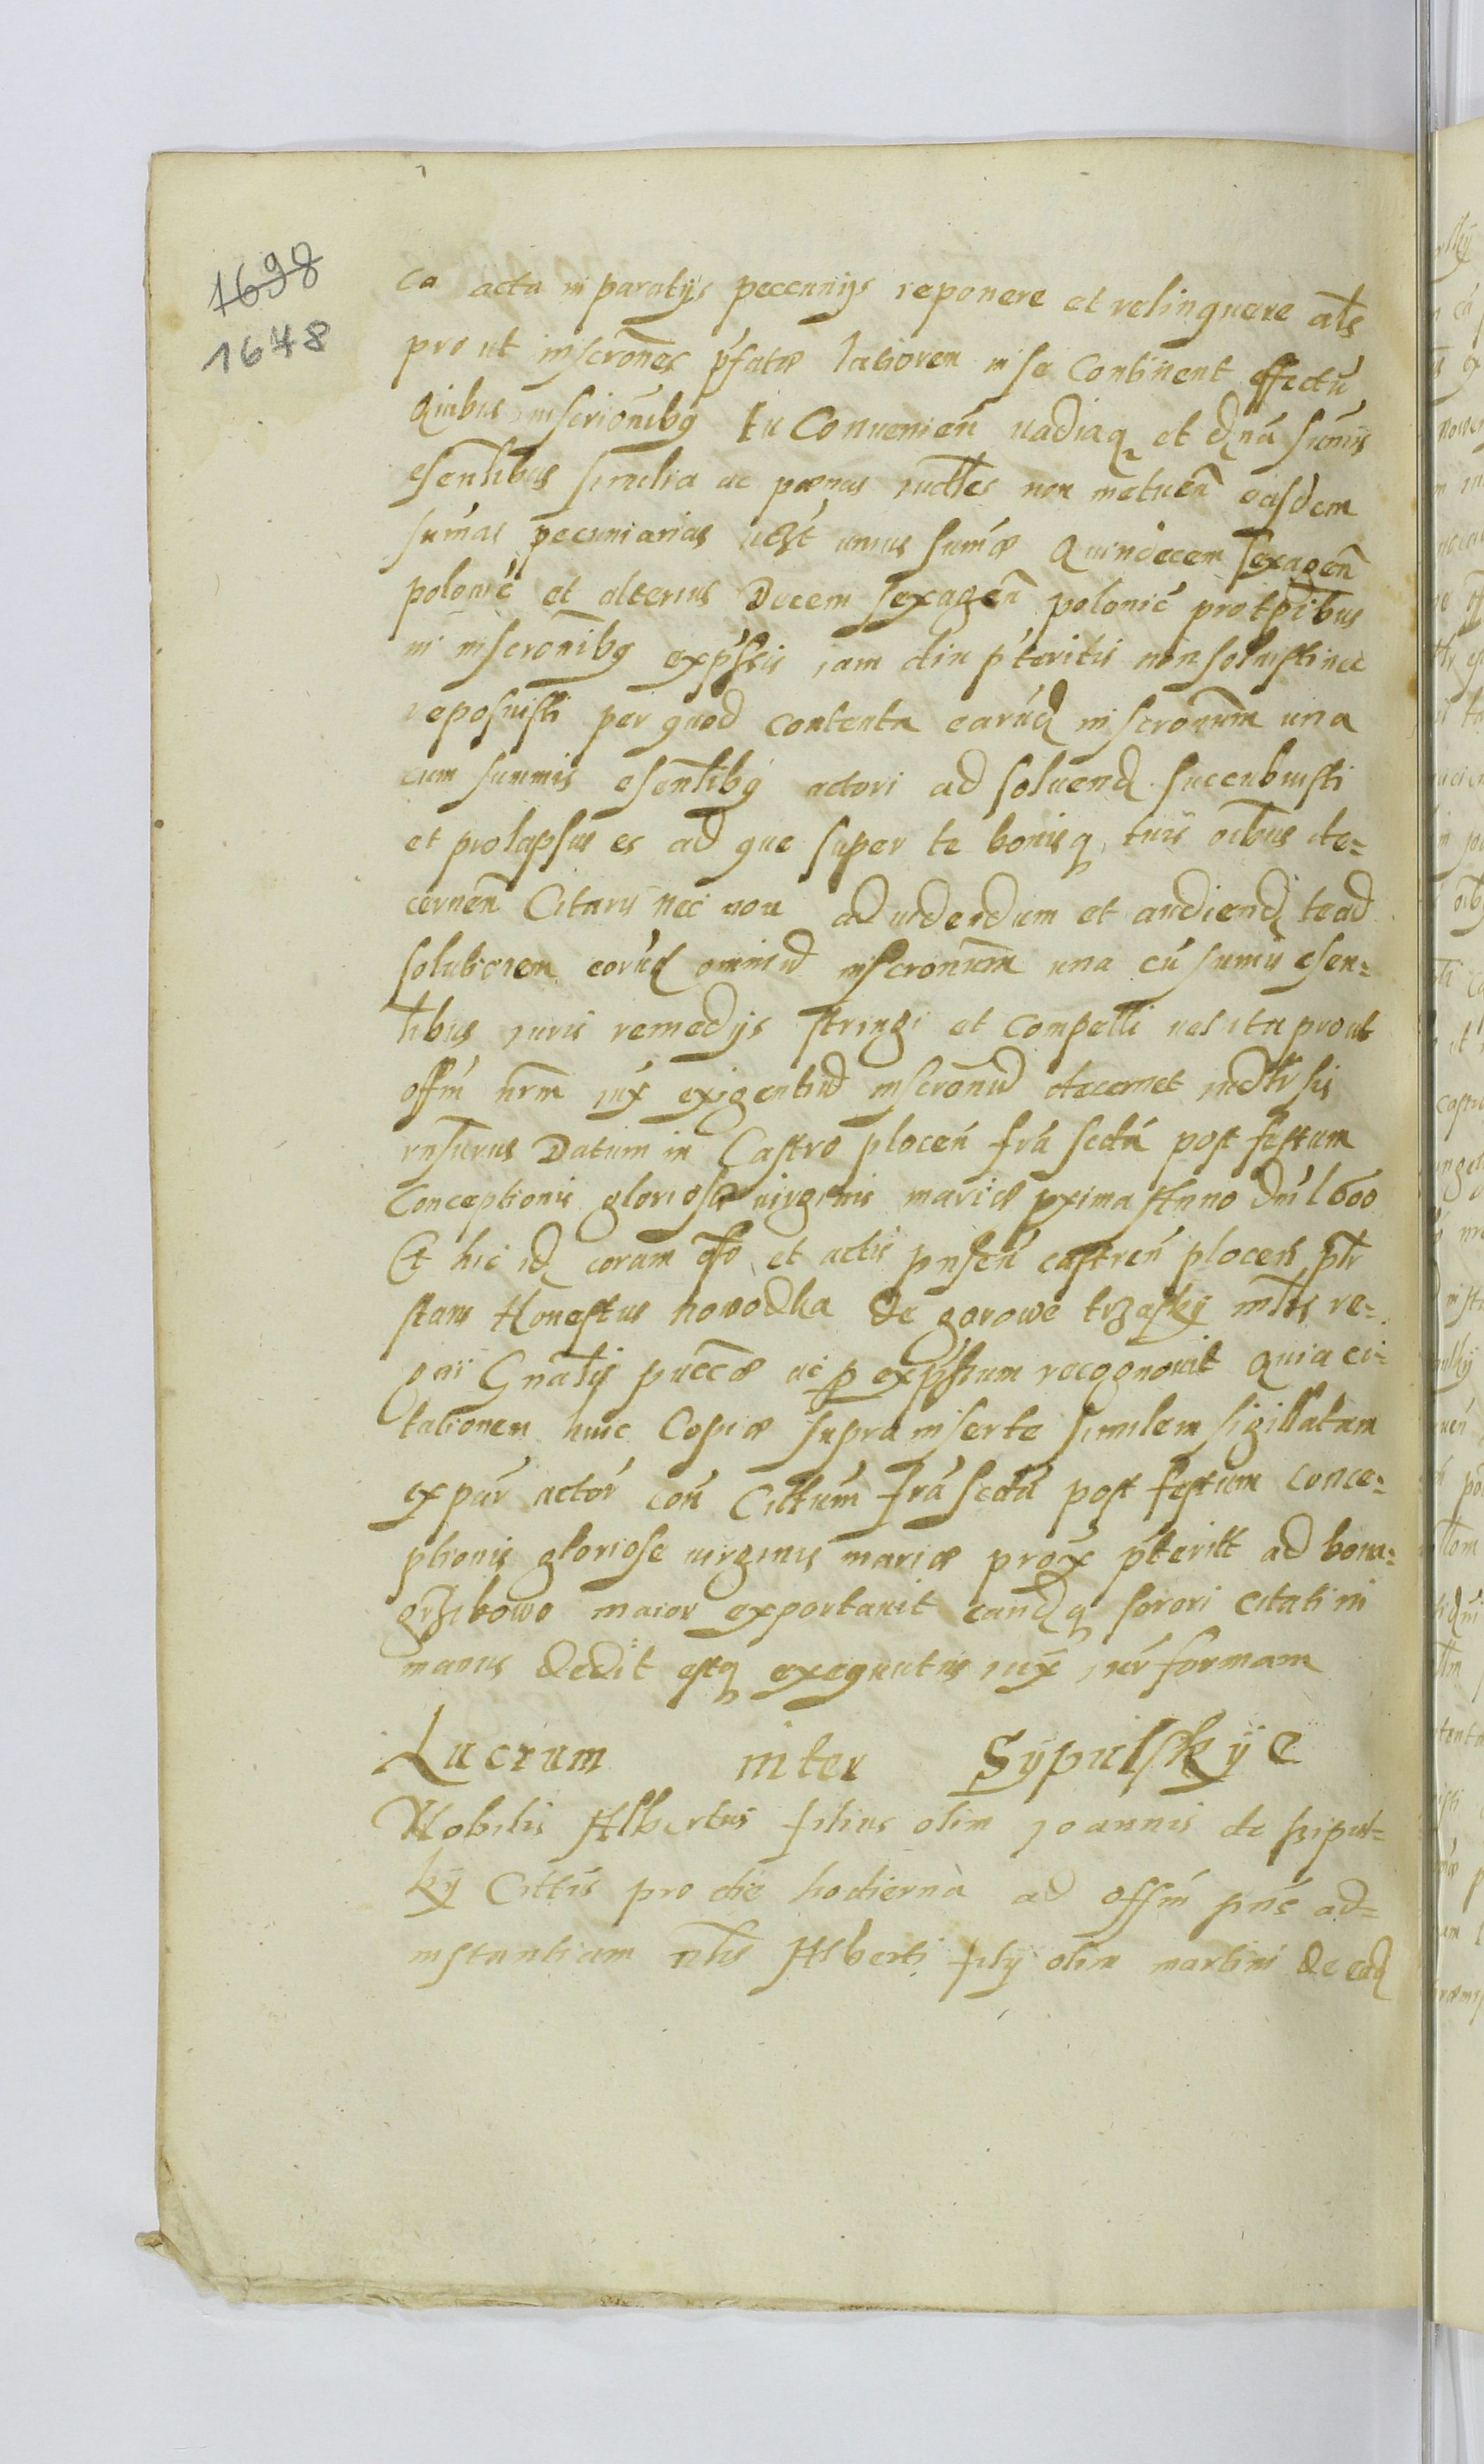 1698
1648
ca acta in paratijs pecunijs reponere et relinquere als
pro ut inscrones pfatæ latiorem in se Continent effectu
Quibus inscrionibq tu Conuenien uadiaq et dna sumis
esentibus similia ac pœnas iudles non metuen easdem
sumas pecuniarias uzt unius sumæ Quindecem sexagen
polonic et alterius Decem sexagen polonic pro tpibus
in inscronibq expssis iam diu pteritis non soluisti nec
reposuisti per quod contenta earud inscronum una
cum summis esentibq actori ad soluend succubuisti
et prolapsus es ad que super te bonisq tuis oibus de=
cernen Citaris nec non ad uidendum et audiend te ad
solutionem eorud omniu inscronum una cu sumis esen=
tibus iuris remedijs stringi et compelli uel ita prout
offm nrm iux exigentiu inscronu decernet iudlr sis
rnsurus Datum in Castro plocen fra scda post festum
Conceptionis gloriosæ uirginis mariæ pxima Anno Dni 1600
Et hic id coram offo et actis pnsen castren plocen ptr
stans Honestus nowodka de gorowe trzasky mltis re=
gni Gnalis puccæ ac p expssum recognouit Quia ci=
tationem huic Copiæ supra inserte similem sigillatam
ex par actor con Cittum fra scda post festum conce=
ptionis gloriose uirginis mariæ prox pteritt ad bona=
grzibowo maior exportauit eandq sorori citati in
manus dedit estq exequutus iux iur formam
Lucrum inter Sÿpulskÿe
Nobilis Albertus filius olim Joannis de sipul=
kÿ Cittus pro die hodierna ad offm pns ad=
instantiam nlis Alberti filij olim martini de ead